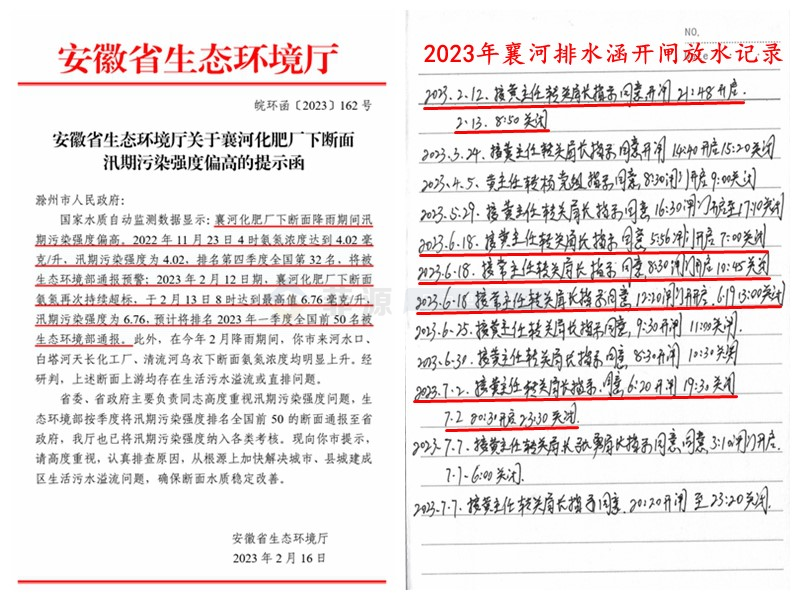 安徽省生态环境厅
皖环函〔2023〕162 号
安徽省生态环境厅关于襄河化肥厂下断面
汛期污染强度偏高的提示函
滁州市人民政府：
国家水质自动监测数据显示：襄河化肥厂下断面降雨期间汛
期污染强度偏高。2022 年 11 月 23 日 4 时氨氮浓度达到 4.02 毫
克/升，汛期污染强度为 4.02，排名第四季度全国第 32 名，将被
生态环境部通报预警；2023 年 2 月 12 日期，襄河化肥厂下断面
氨氮再次持续超标，于 2 月 13 日 8 时达到最高值 6.76 毫克/升，
汛期污染强度为 6.76，预计将排名 2023 年一季度全国前 50 名被
生态环境部通报。此外，在今年 2 月降雨期间，你市来河水口、
白塔河天长化工厂、清流河乌衣下断面氨氮浓度均明显上升。经
研判，上述断面上游均存在生活污水溢流或直排问题。
省委、省政府主要负责同志高度重视汛期污染强度问题，生
态环境部按季度将汛期污染强度排名全国前 50 的断面通报至省
政府，我厅也已将汛期污染强度纳入各类考核。现向你市提示，
请高度重视，认真排查原因，从根源上加快解决城市、县城建成
区生活污水溢流问题，确保断面水质稳定改善。
安徽省生态环境厅
2023 年 2 月 16 日
NO.
2023年襄河排水涵开闸放水记录
2023.2.12.接黄主任转关局长指示同意开闸 21:48开启.
2.13. 8:50关闭
2023.3.24.接黄主任转关局长指示同意开闸 14:40开启15:20关闭
2023.4.5.黄主任转杨党组指示同意,8:30闸门开启9:00关闭
2023.5.29.接黄主任转关局长指示同意,16:30闸门开启至17:10关闭
2023.6.18.接黄主任转关局长指示同意 5:56闸门开启7:00关闭
2023.6.18.接常主任转关局长指示同意,8:30闸门开启10:45关闭
2023.6.18接常主任转关局长指示同意,12:20闸门开启.6.19 13:00关闭
2023.6.25.接黄主任转关局长指示同意,9:30开闸 11:00关闭.
2023.6.30.接黄主任转关局长指示同意 8:30开闸 10:30关闭
2023.7.2.接黄主任转关局长指示.同意6:20开闸 19:30关闭
7.2 20:30开启23:30关闭.
2023.7.7.接黄主任转关局长指示同意,同意3:10闸门开启.
7.7-6:00关闭.
2023.7.7.接黄主任转关局长指示同意.20:20开闸 至23:20关闭